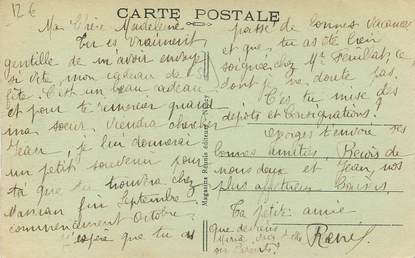 12 €
CARTE POSTALE
Ma Chère Madeleine
Tu es vraiment
gentille de m'avoir envoyé
si vite, mon cadeau de
fête. C'est un beau cadeau
et pour te remercier quand
ma sœur, viendra chercher
Jean, je lui donnerai
un petit souvenir pour
toi que tu trouvera chez
Maman fin Septembre
commencement Octobre.
J'espère que tu as
Magasins Réunis éditeur
passé de bonnes vacances
et que, tu as été bien
soignée chez Mr
dont je ne doute pas.
T'es tu mise des
dépots et consignations?
Georges t'envoie ses
bonnes amitiés, Reçois de
nous deux et Jean, nos
plus affectueux baisers.
Ta petite amie
que devient
Maria
Renée